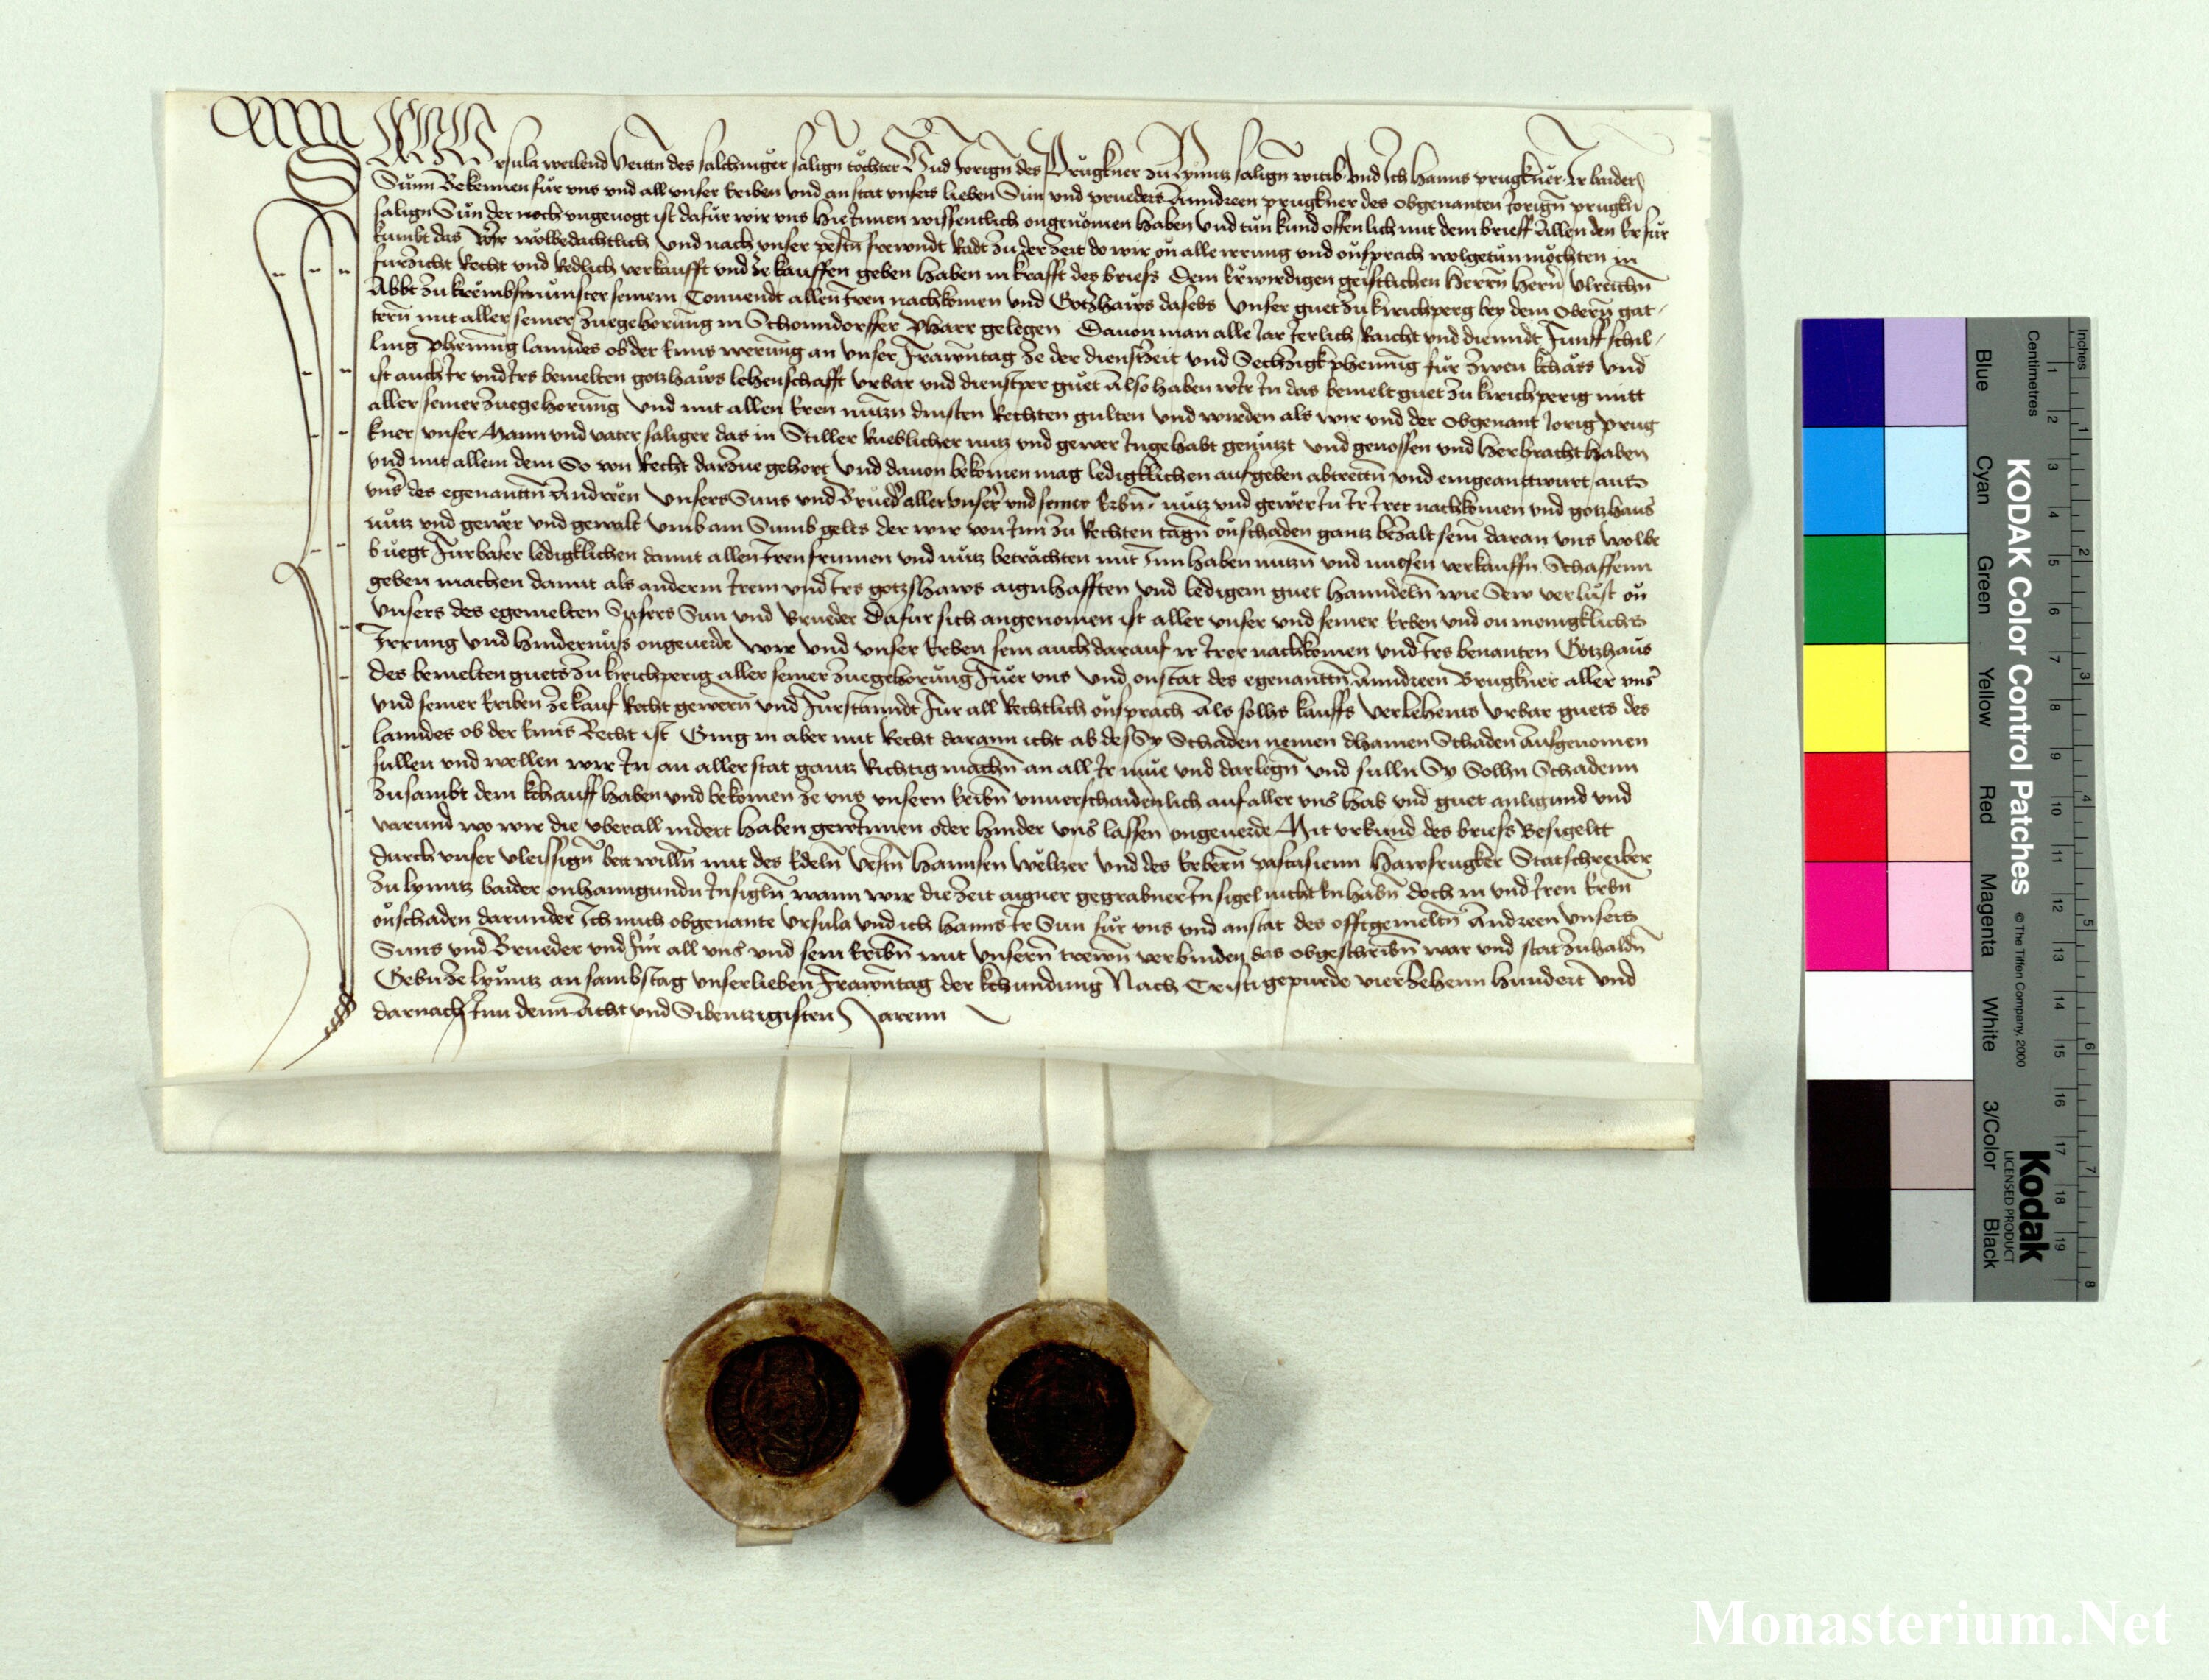 Ich Ursula weilend Veittn des salchinger sålign tochter Und Jorign des Prugkner zu Lynntz salign witib und Ich Hanns prugkner Ir baider
Sunn Bekennen fur uns und all unser Eriben und anstat unsers lieben Sun und prueders Anndreen prugkner des obgenanten Jorign prugkn
salign Sun der noch ungenogt ist dafur wir uns hie Innen wissentlich angenomen haben und tun kund offenlich mit dem brieff Allen den Er fur
kumbt das Wir wolbedachtlich Und nach unser pestn frewndt Radt zu der Zeit do wir on alle irrung und onsprach wolgetun mochten in
furzicht Recht und Redlich verkaufft und ze kauffen geben haben in krafft des briefs Dem Erwirdigen geistlichen Herrn Hern Ulreichn
Abbt zu krembsmunster seinem Connendt allen Iren nachkomen und Gotzhaws dasebs Unser guet zu kirichperg bey dem Obern gat-
tern mit aller seiner zuegehorung in Schonndorffer Pharr gelegen Dauon man alle Jar Ierlich Raicht und dienndt Funff schil-
ling phening lanndes ob der Enns werung an unser Frawntag ze der dienstzeit und Sechzigk phening fur zwen khass Und
ist auch Ir und Irs bemelten gotzhaws lehenschafft Urbar und dienstper guet Also haben wir In das bemelt guet zu kirichperig mitt
aller seiner zuegehorung Und mit allen Eren nutzn dinsten Rechten gulten und wirden als wir und der obgenant Jorig prug
kner unser Mann und vater saliger das in Stiller Rueblicher nutz und gewer Ingehabt genutzt Und genossen und herbracht haben
und mit allem dem So von Recht darzue gehort Und dauon bekomen mag ledigklichen aufgeben abtrettn und eingeanttwurt aus
uns des egenanttn Andreen Unsers Suns und Brueds aller unser und seiner Erbn nutz und gewer In Ir Irer nachkomen und gotzhaus
nutz und gewer und gewalt Umb ain Sumb gelts der wir von Inn zu Rechten tagn onschaden gantz bezalt sein daran uns wolbe
buegt Furbaser ledigklichen damit allen Iren frumen und nutz betrachten mit Innhaben nutzn und niessen verkauffn Schaffenn
geben machen damit als anderm Irem und Irs gotzshaws aignhafften Und ledigem guet hanndeln wie Sew verlust on
Unsers des egemelten Unsers Sun und Brueder Dafur sich angenomen ist aller unser und seiner Erben und on menigklichs
Irrung Und hindernuss ongeuerde Wir Und unser Erben sein auch darauf ir Irer nachkomen und Irs benanten Gotzhaus
des bemelten guets zu kirichperig aller seiner zuegehorung Fuer uns Und onstat des egenanttn Anndreen Brugkner aller uns
und seiner Eriben ze kauf Recht gewern und Furstanndt Fur all Rechtlich onsprach Als solhs kauffs Verlehents Urbar guets des
lanndes ob der Enns Recht ist Ging in aber mit Recht darann icht ab des Sy Schaden nemen dhainen Schaden Ausgenomen
sullen und wellen wir In an aller stat gantz Richtig machn an all Ir mue und darlegn Und sulln Sy Solhn Schadenn
zusambt dem khauff haben und bekomen ze uns unsern Eribn unuerschaidenlich auf aller uns hab und guet anligund und
varund wo wir die uberall indert haben gewinnen oder hinder uns lassen ongeuerde Mit urkund des briefs Besigeltt
durch unser vleissign bett willn mit des Edeln Vestn Hannsen Weltzer Und des Erbern vastasienn Hawsrugker Statschreiber
zu Lynntz baider onhanngundn Insigln wann wir die Zeit aigner gegrabner Insigel nicht Enhabn doch in und Iren Erbn
onschaden darunder Ich mich obgenante Ursula Und ich Hanns Ir Sun fur uns und anstat des offtgemeltn Andreen Unsers
Suns und Brueder und fur all uns und sein Eribn mit Unsern trewn verbinden das obgeschribn war und stat zuhaldn
Gebn ze Lynntz an sambstag unserlieben Frawntag der khundung Nach Cristi gepurde vierzehenn hundert Und
darnach Inn denn Acht und Sibentzigisten Jarenn
KODAK Color Control Patches
© The Tiffen Company, 2000
Kodak
LICENSED PRODUCT
Inches
Centimetres
Blue
Cyan
Green
Yellow
Red
Magenta
White
3/Color
Black
1 2 3 4 5 6 7 8 9 10 11 12 13 14 15 16 17 18 19
1 2 3 4 5 6 7 8
Monasterium.Net